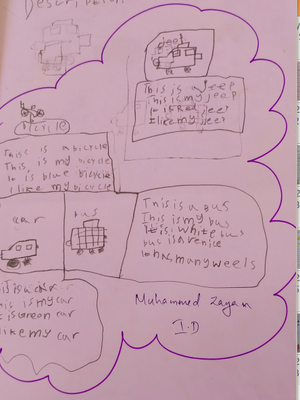 jeep
This is a jeep
This is my jeep
It is Red jeep
I like my jeep
BICYCLE
This is a bicycle
This is my bicycle
It is blue bicycle
I like my bicycle
car
bus
This is a bus
This is my bus
It is white bus
bus is
It has many weels
is a car
is my car
car
like my car
Muhammed Zayan
I.D